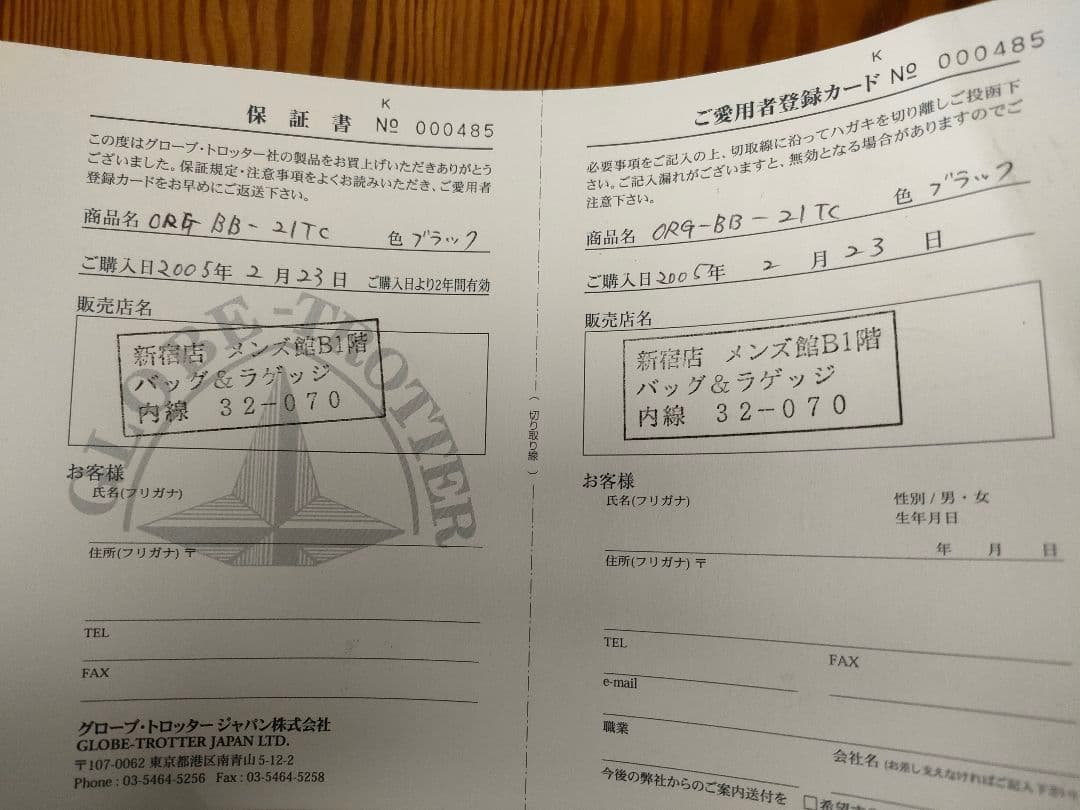 保証書 K № 000485
この度はグローブ・トロッター社の製品をお買上げいただきありがとう
ございました。保証規定・注意事項をよくお読みいただき、ご愛用者
登録カードをお早めにご返送下さい。
商品名 ORG BB-21TC 色 ブラック
ご購入日2005年 2月23日 ご購入日より2年間有効
販売店名
GLOBE-TROTTER
新宿店 メンズ館B1階
バッグ&ラゲッジ
内線 32-070
お客様
氏名(フリガナ)
住所(フリガナ)〒
TEL
FAX
グローブ・トロッター ジャパン株式会社
GLOBE-TROTTER JAPAN LTD.
〒107-0062 東京都港区南青山 5-12-2
Phone : 03-5464-5256 Fax : 03-5464-5258
(切り取り線)
ご愛用者登録カード K № 000485
必要事項をご記入の上、切取線に沿ってハガキを切り離しご投函下
さい。ご記入漏れがございますと、無効となる場合がありますのでご
注意下さい。
商品名 ORG-BB-21TC 色 ブラック
ご購入日2005年 2月23日
販売店名
新宿店 メンズ館B1階
バッグ&ラゲッジ
内線 32-070
お客様
氏名(フリガナ)
性別 / 男・女
生年月日
年 月 日
住所(フリガナ)〒
TEL
FAX
e-mail
職業
会社名 (お差し支えなければご記入下さい)
今後の弊社からのご案内送付を □希望